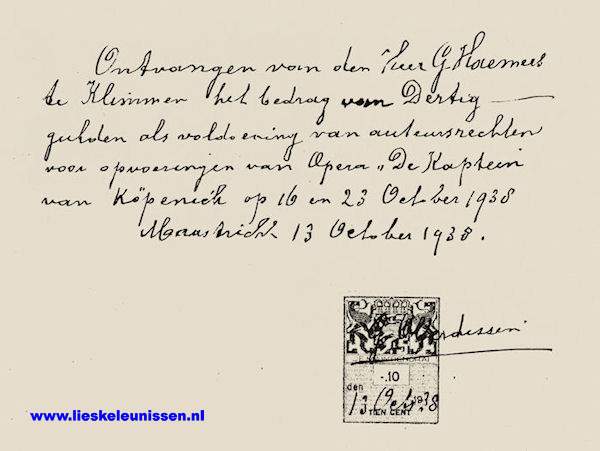 Ontvangen van den Heer G Haemees
te Klimmen het bedrag van Dertig —
gulden als voldoening van auteursrechten
voor opvoeringen van Opera „De Kaptein
van Köpenick op 16 en 23 October 1938
Maastricht 13 October 1938.
-.10
den
13 Oct. 1938
TIEN CENT
www.lieskeleunissen.nl